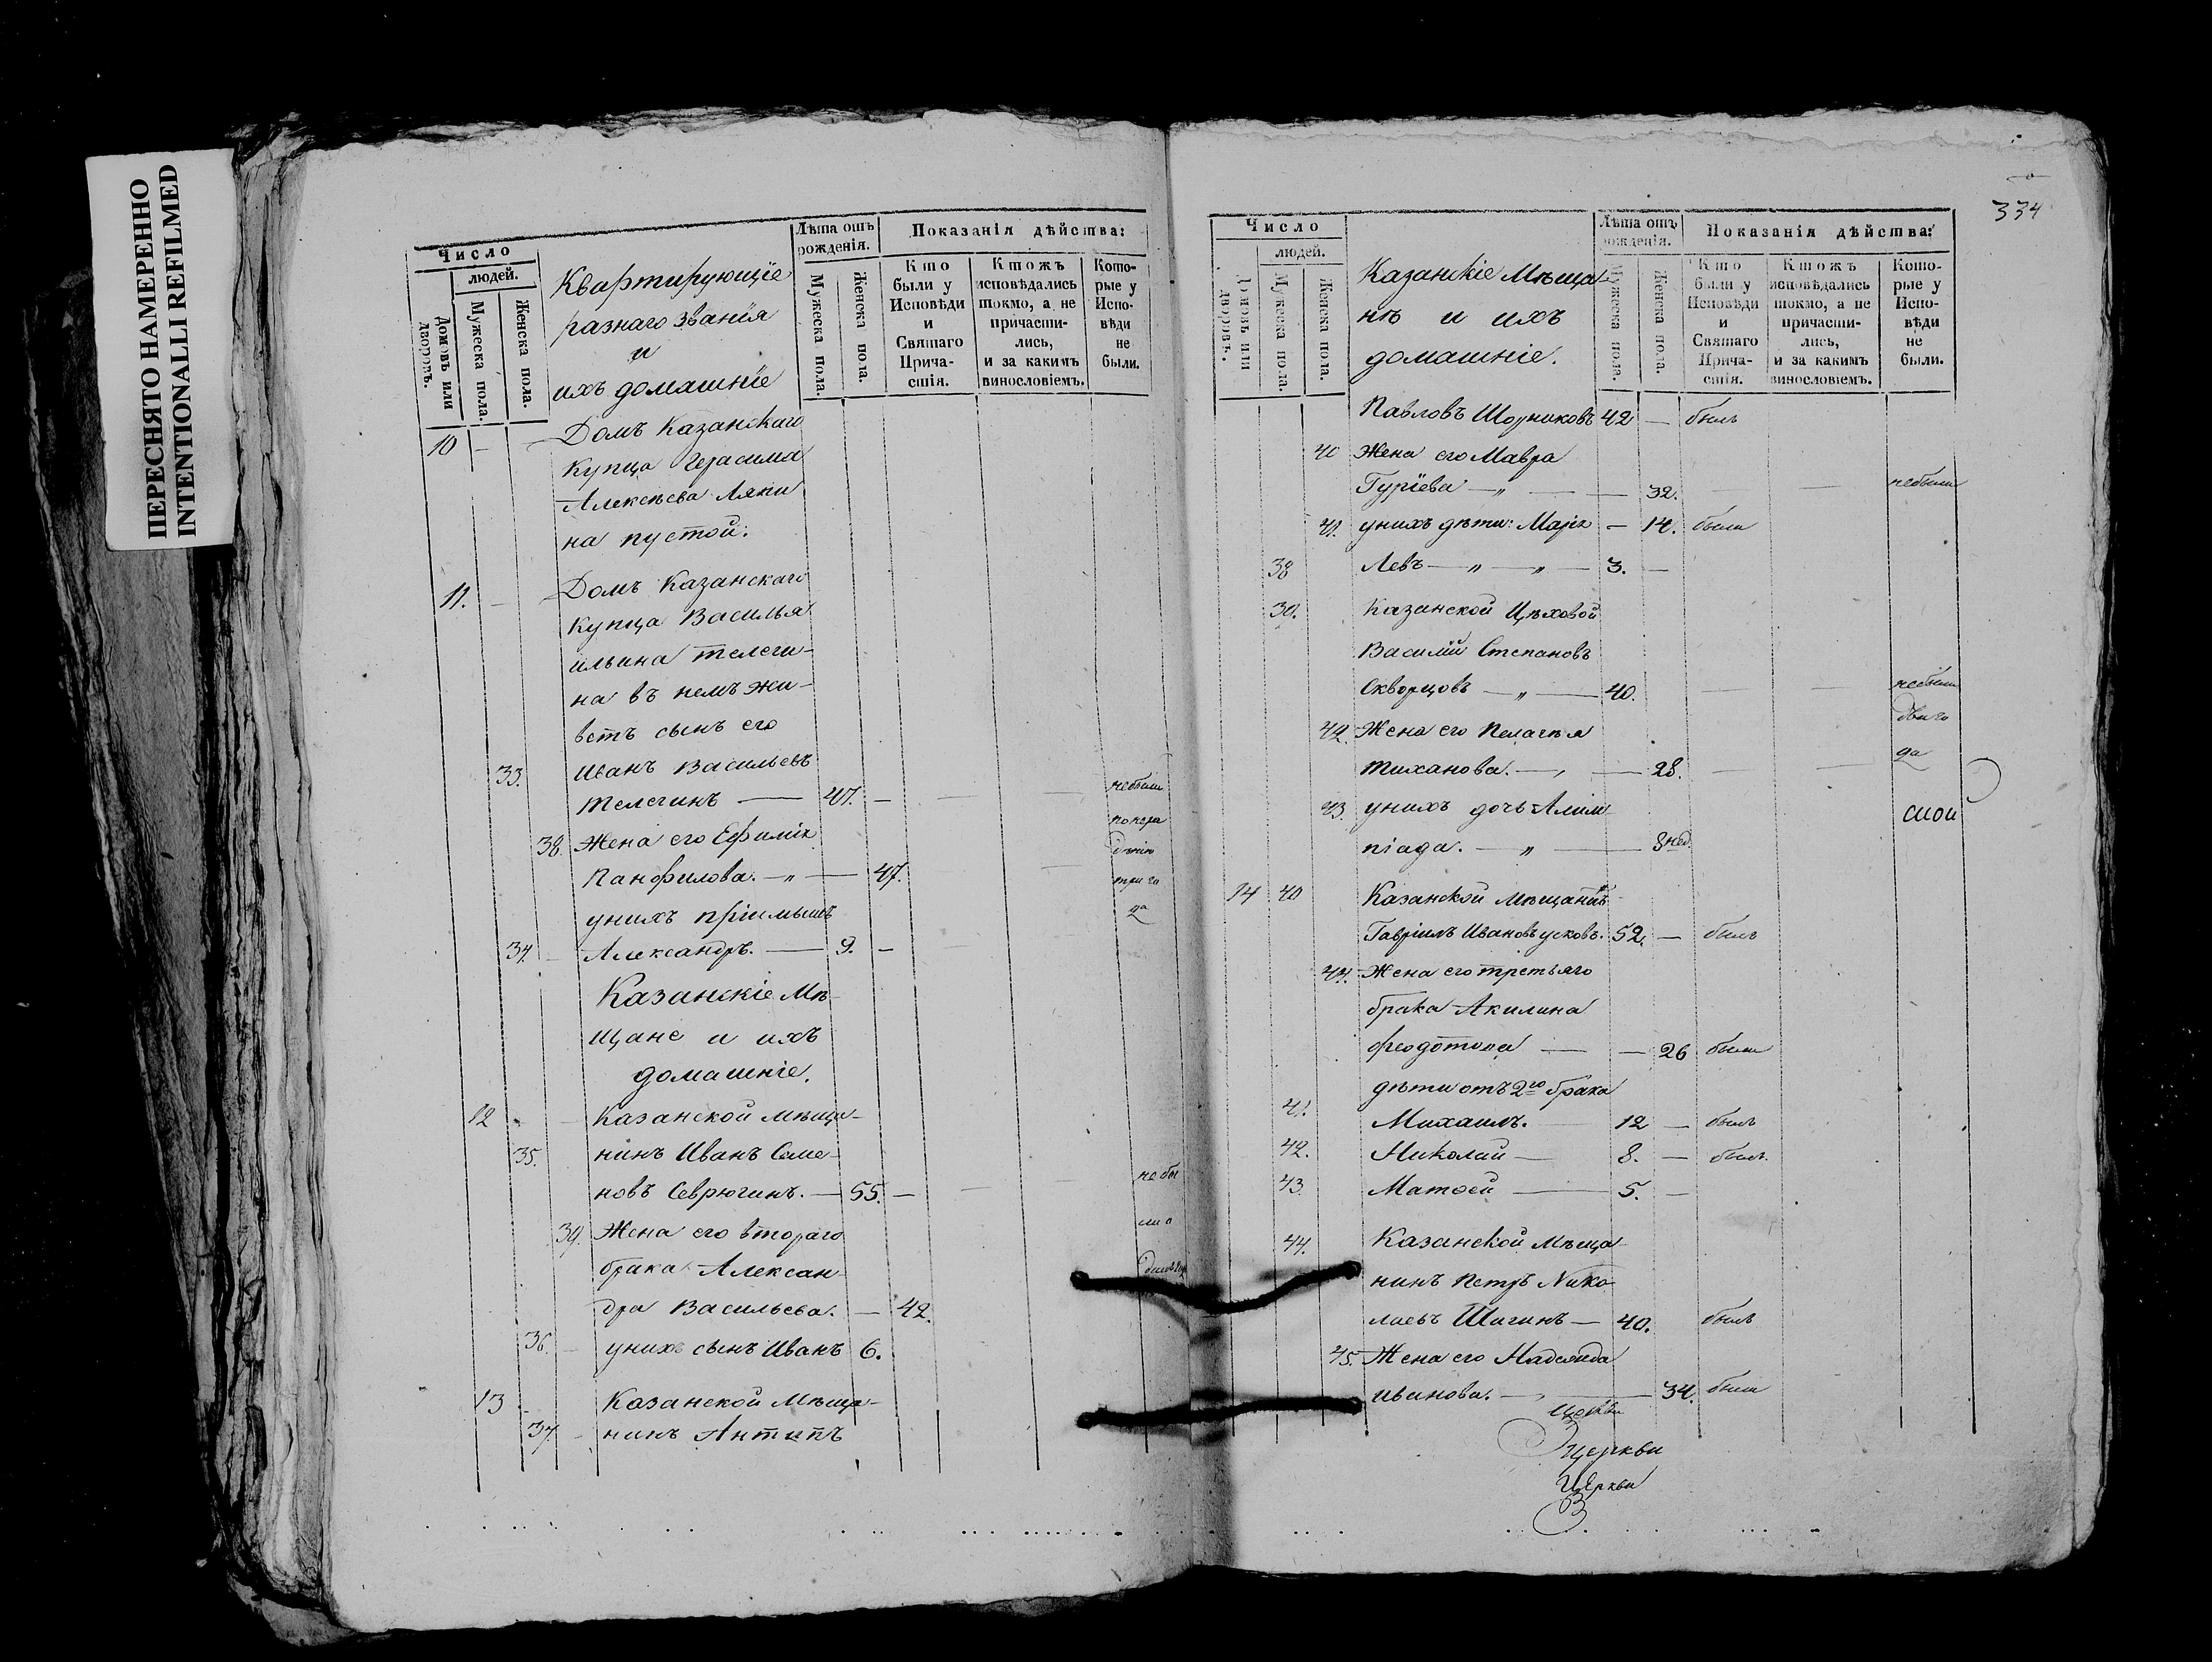 ПЕРЕСНЯТО НАМЕРЕННО
INTENTIONALLI REFILMED
Число
людей.
Домовъ или дворовъ.
Мужеска пола.
Женска пола.
Квартирующіе
разнаго званія
и
ихъ домашніе
Лѣта отъ рожденія.
Мужеска пола.
Женска пола.
Показанія дѣйства:
Кто были у Исповѣди и Святаго Прича-стія.
Ктожъ исповѣдались токмо, а не причасти-лись, и за какимъ винословіемъ.
Кото-рые у Испо-вѣди не были.
10 — Домъ Казанскаго
Купца Герасима
Алексѣева Ляки
на пустой.
11. — Домъ Казанскаго
Купца Василья
ильина телеги-
на въ немъ жи-
ветъ сынъ его
33. Иванъ Васильевъ
Телегинъ — 47. — небыли
38. Жена его Ефимія
Панфилова. —„— 47.
унихъ пріимышъ
34. — Александръ. — 9. —
Казанскіе Мѣ-
щане и ихъ
домашніе.
12 — Казанской мѣща-
35. нинъ Иванъ Семе-
новъ Севрюгинъ. — 55. — небы
ли
39. Жена его втораго
брака Алексан-
дра Васильева. — 42.
36. — унихъ сынъ Иванъ 6.
13 Казанской Мѣща-
37. — нинъ Антипъ
334
Число
людей.
Домовъ или дворовъ.
Мужеска пола.
Женска пола.
Казанскіе Мѣща-
не и ихъ
домашніе.
Лѣта отъ рожденія.
Мужеска пола.
Женска пола.
Показанія дѣйства:
Кто были у Исповѣди и Святаго Прича-стія.
Ктожъ исповѣдались токмо, а не причасти-лись, и за какимъ винословіемъ.
Кото-рые у Испо-вѣди не были.
Павловъ Шорниковъ 42 — былъ
40 Жена его Мавра
Гуріева —„— — 32. — — небыли
41. унихъ дѣти: Марія — 14. была
38 Левъ —„—„— 3. —
39. Казанской Цѣховой
Василій Степановъ
Скворцовъ —„— 40. — — небыли
42. Жена его Пелагѣя
Тиханова. — — 28. — —
43. унихъ дочь Алим-
піада. —„— 8 нед.
14 40 Казанской мѣщанинъ
Гавріилъ Ивановъ усковъ. 52. — былъ
44. Жена его третьяго
брака Акилина
феодотова — — 26 была
дѣти отъ 2го брака
41. Михаилъ. 12 — былъ
42. Николай — 8. — былъ.
43. Матвей — 5. —
44. Казанской мѣща-
нинъ Петръ Нико-
лаевъ Шигинъ — 40. былъ
45. Жена его Надежда
иванова. — 34. была
церкви
церкви
Церкви